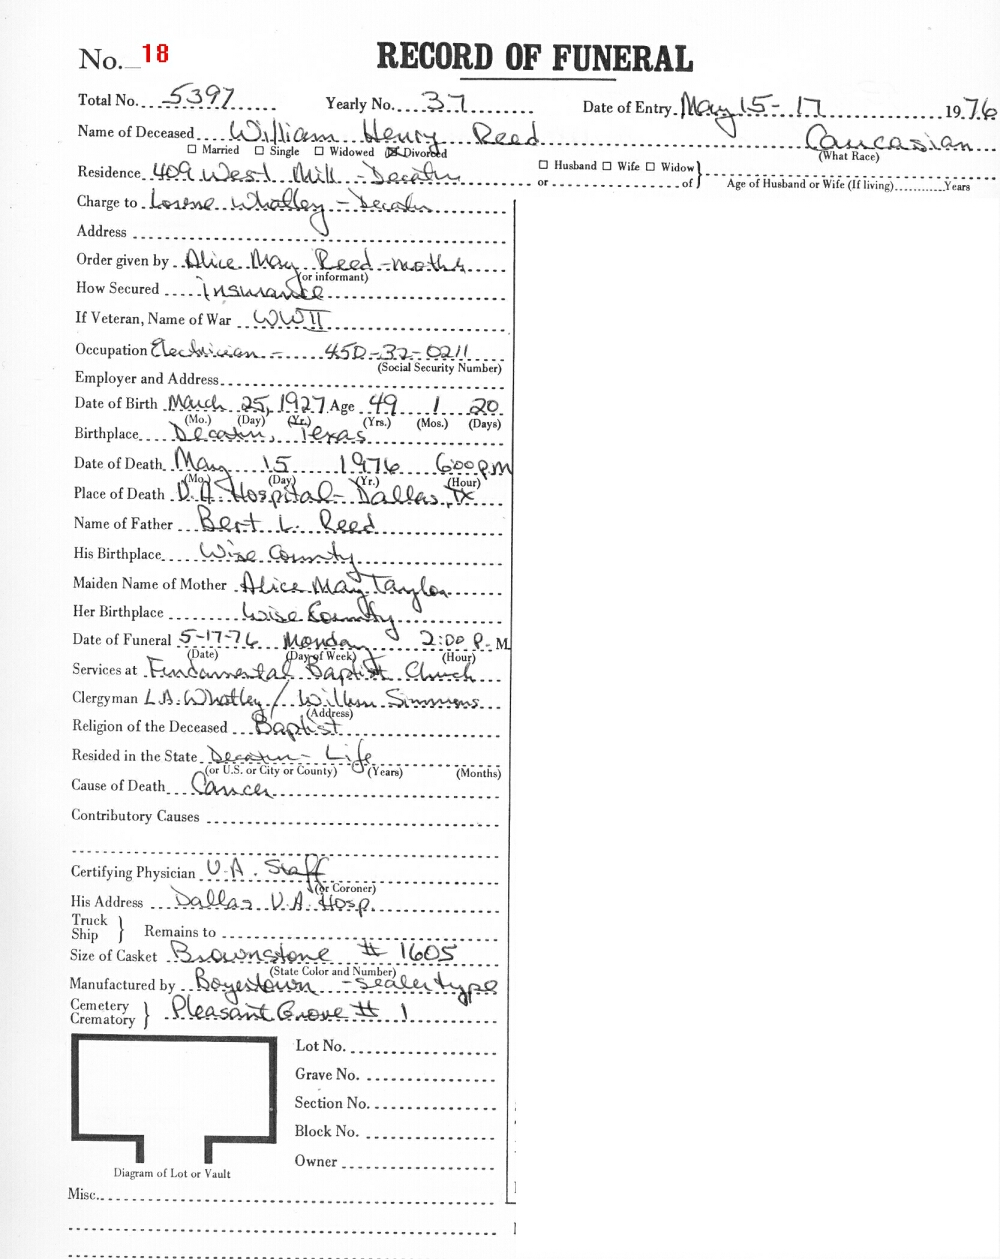 No. 18 RECORD OF FUNERAL
Total No. 5397 Yearly No. 37 Date of Entry May 15-17 1976
Name of Deceased William Henry Reed Caucasian
☐ Married ☐ Single ☐ Widowed ☒ Divorced (What Race)
Residence 409 West Mill - Decatur ☐ Husband ☐ Wife ☐ Widow
or of Age of Husband or Wife (If living) Years
Charge to Lorene Whatley - Decatur
Address
Order given by Alice May Reed - mother
(or informant)
How Secured Insurance
If Veteran, Name of War WWII
Occupation Electrician - 450-32-0211
(Social Security Number)
Employer and Address
Date of Birth March 25, 1927 Age 49 1 20
(Mo.) (Day) (Yr.) (Yrs.) (Mos.) (Days)
Birthplace Decatur, Texas
Date of Death May 15 1976 6:00 PM
(Mo.) (Day) (Yr.) (Hour)
Place of Death V.A. Hospital - Dallas, TX
Name of Father Bert L. Reed
His Birthplace Wise County
Maiden Name of Mother Alice May Taylor
Her Birthplace Wise County
Date of Funeral 5-17-76 Monday 2:00 P. M
(Date) (Day of Week) (Hour)
Services at Fundamental Baptist Church
Clergyman L.A. Whatley / William Simmons
(Address)
Religion of the Deceased Baptist
Resided in the State Decatur - Life
(or U.S. or City or County) (Years) (Months)
Cause of Death Cancer
Contributory Causes
Certifying Physician V.A. Staff
(or Coroner)
His Address Dallas V.A. Hosp.
Truck
Ship } Remains to
Size of Casket Brownstone # 1605
(State Color and Number)
Manufactured by Boyertown - sealer type
Cemetery
Crematory } Pleasant Grove # 1
Lot No.
Grave No.
Section No.
Block No.
Owner
Diagram of Lot or Vault
Misc.